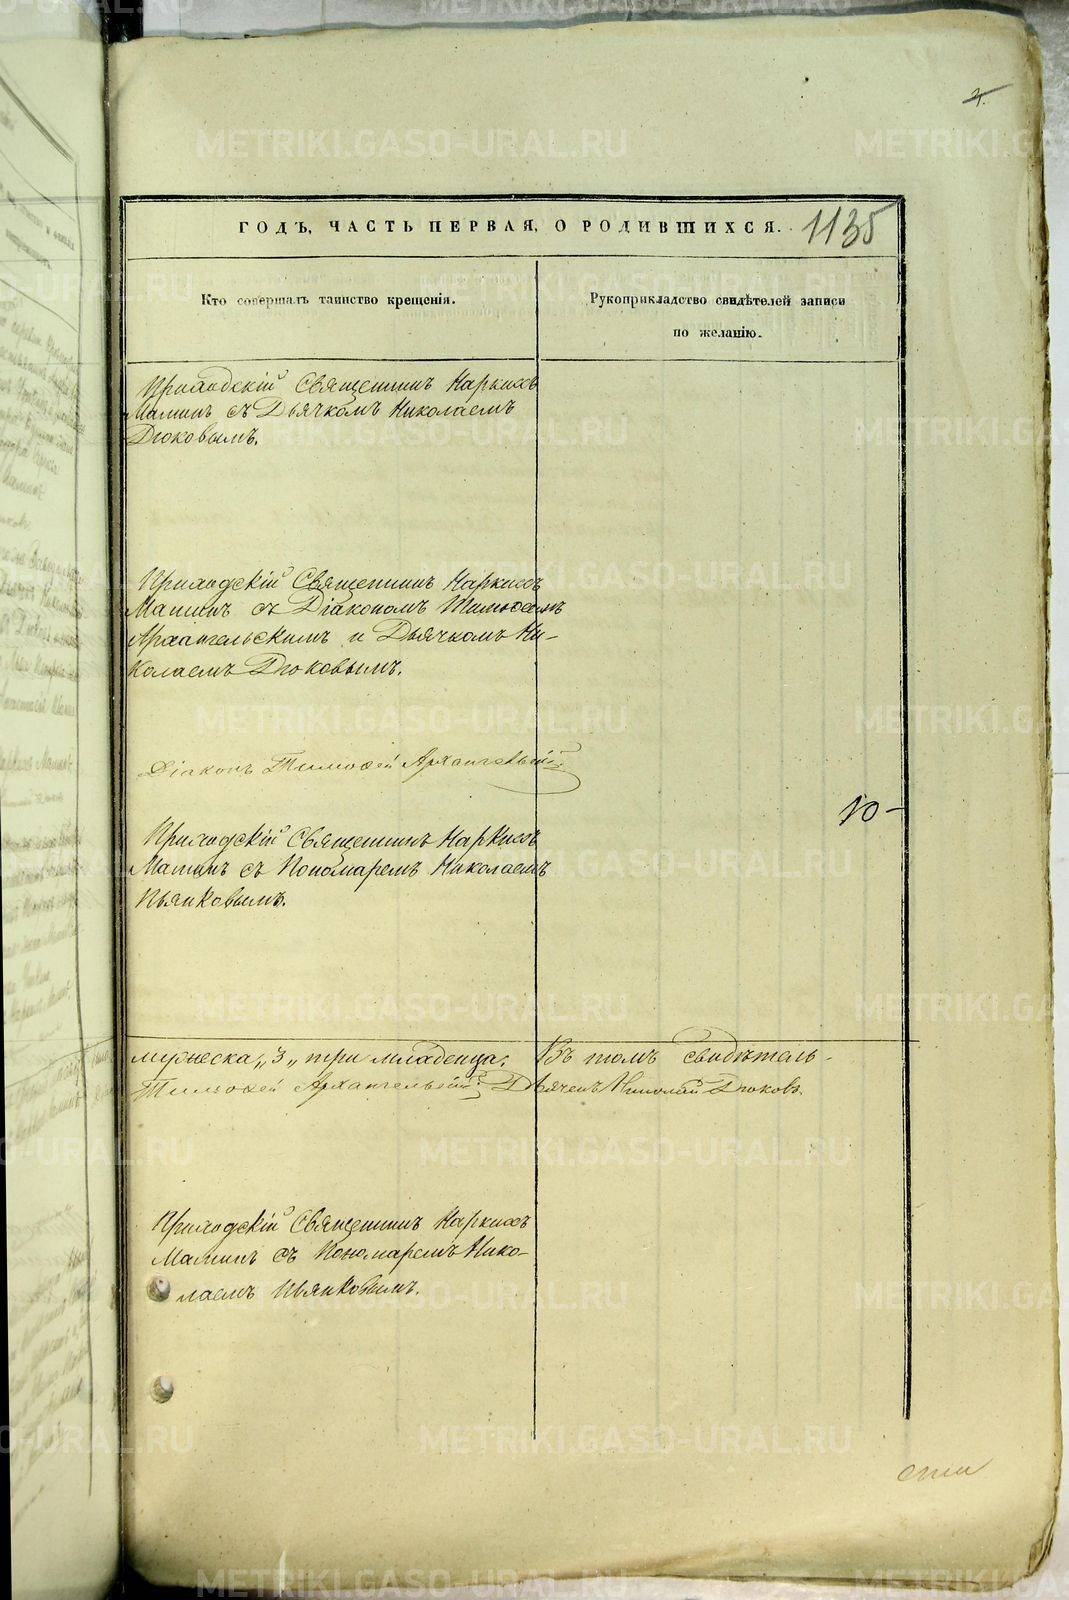 ГОДЪ, ЧАСТЬ ПЕРВАЯ, О РОДИВШИХСЯ. 1135
Кто совершалъ таинство крещенія.
Рукоприкладство свидѣтелей записи
по желанію.
Приходскій Священникъ Наркисъ
Мамин съ Дьячкомъ Николаемъ
Дюковымъ.
Приходскій Священникъ Наркисъ
Маминъ съ Діакономъ Тимоѳеемъ
Архангельскимъ и Дьячкомъ Ни-
колаемъ Дюковымъ.
Діаконъ Тимоѳей Архангельскій
10-
Приходскій Священникъ Наркисъ
Маминъ съ Пономаремъ Николаемъ
Пьянковымъ.
"3" три младенца. Въ томъ свидѣтель-
Тимоѳей Архангельскій. Дьячекъ Николай Дюковъ.
Приходскій Священникъ Наркисъ
Маминъ съ Пономаремъ Нико-
лаемъ Пьянковымъ.
METRIKI.GASO-URAL.RU